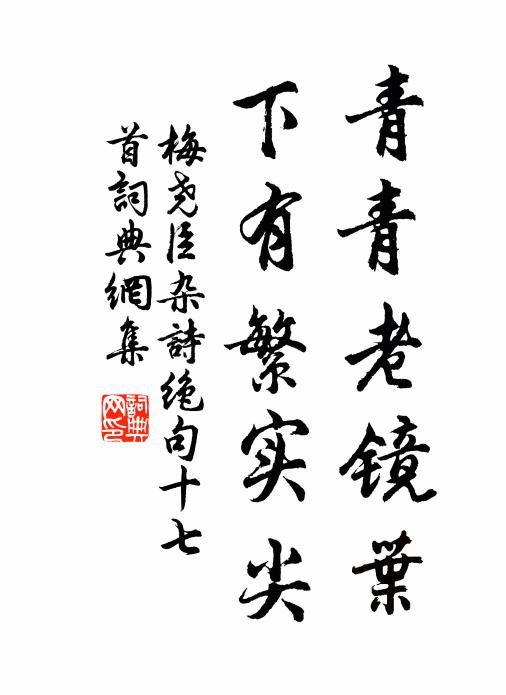 青青老镜葉
下有繁实尖
梅尧臣杂詩绝句十七
首詞典網集
詞典
网印